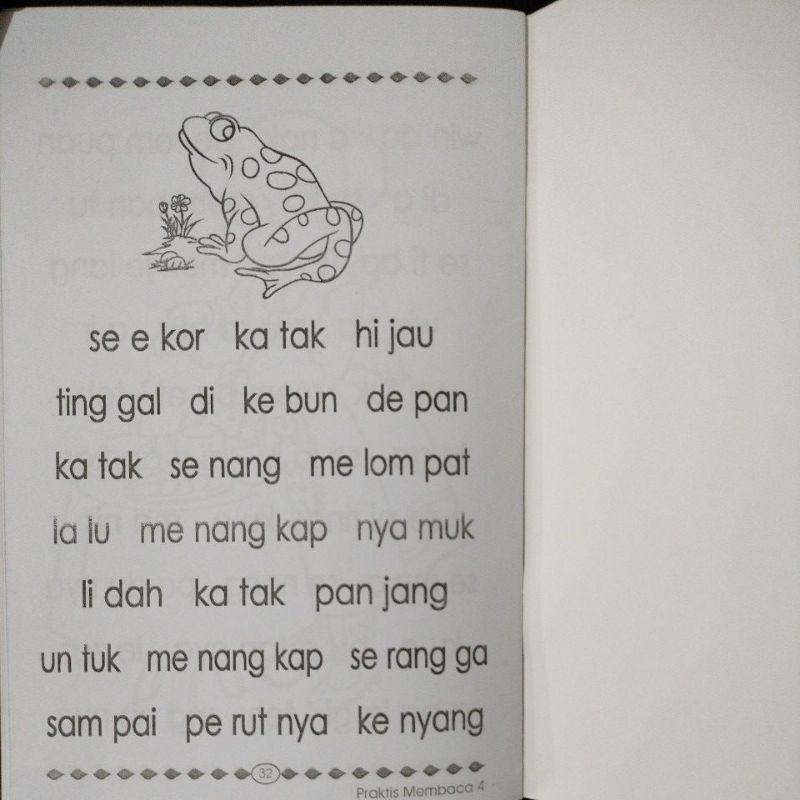 se e kor ka tak hi jau
ting gal di ke bun de pan
ka tak se nang me lom pat
la lu me nang kap nya muk
li dah ka tak pan jang
un tuk me nang kap se rang ga
sam pai pe rut nya ke nyang
32
Praktis Membaca 4